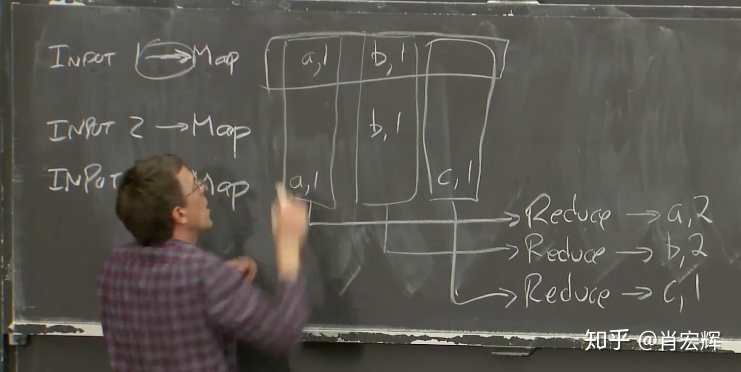 INPUT 1 → Map a,1 b,1
INPUT 2 → Map b,1
INPUT Map a,1 c,1
→ Reduce → a,2
→ Reduce → b,2
→ Reduce → c,1
知乎 @肖宏辉